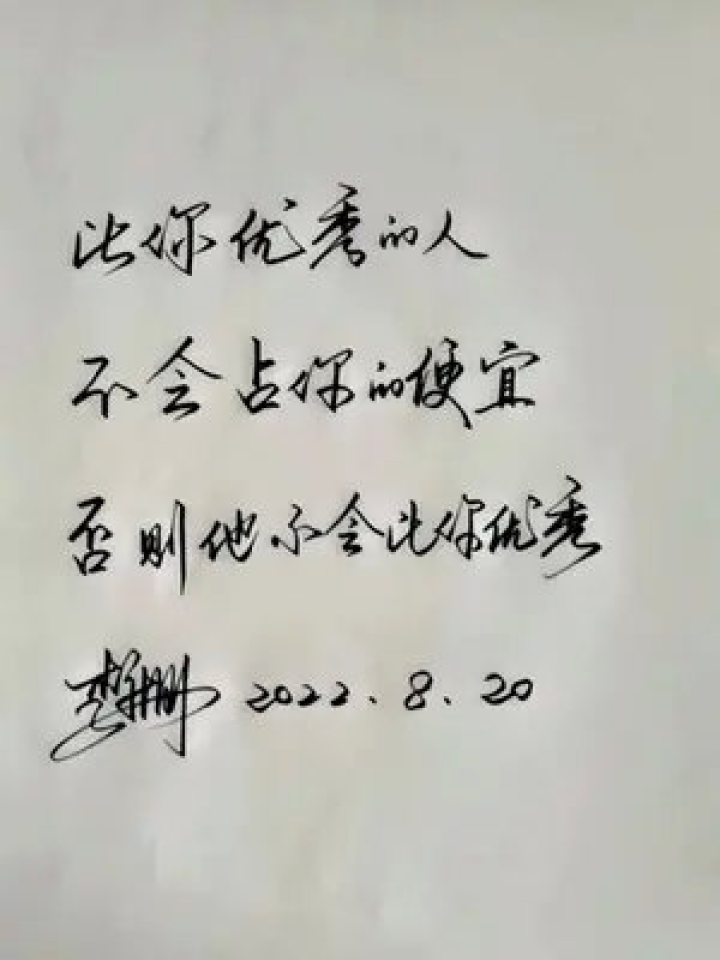 比你优秀的人
不会占你的便宜
否则他不会比你优秀
2022.8.20